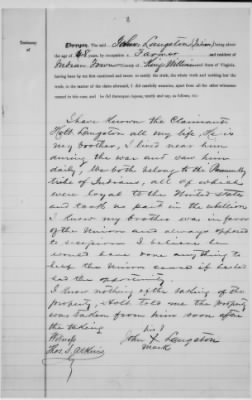 2
Testimony
of
Thereupon, The said John Langston
the age of 48 years, by occupation a Farmer and resident of
Indian Town county of King William and State of Virginia,
having been by me first cautioned and sworn, to testify the truth, the whole truth and nothing but the
truth, in the matter of the claim aforesaid, I did carefully examine, apart from all the other witnesses
named in this case, and he did thereupon depose, testify and say, as follows, viz:
I have known the Claimant
Holt Langston all my life. He is
my brother, I lived near him
during the war and saw him
daily, We both belong to the Pamunkey
tribe of Indians, all of which
were loyal to the United States
and took no part in the rebellion
I know my brother was in favor
of the Union and always opposed
to secession I believe he
would have done anything to
help the Union cause if he had
had the opportunity.
I know nothing of the taking of the
property, Holt told me the property
was taken from him soon after
the taking his
Witness John X Langston
Thos. S. Atkins mark